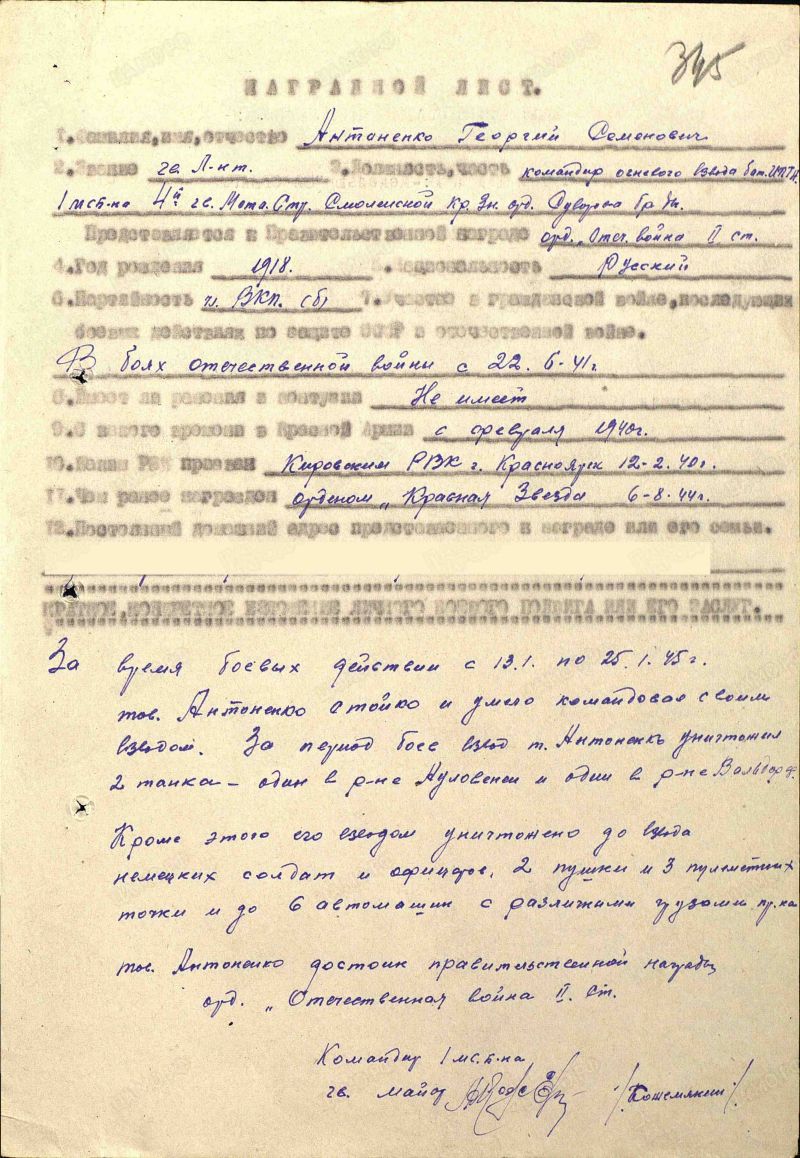 395
НАГРАДНОЙ ЛИСТ.
1.Фамилия,имя,отчество Антаненко Георгий Семенович
2.Звание гв. Л-нт. 3.Должность,часть командир огневого взвода бат.
1 мсб-на 4й гв. Мото. Стр. Смоленской Кр. Зн. орд. Суворова бр.
Представляется к Правительственной награде орд. „Отеч. война II ст.
4.Год рождения 1918. 5.Национальность Русский
6.Партийность ВКП. (б) 7.Участие в гражданской войне,последующих
боевых действиях по защите СССР и отечественной войне.
В боях отечественной войны с 22. 6-41г.
8.Имеет ли ранения и контузии Не имеет
9.С какого времени в Красной Армии с февраля 1940г.
10.Каким РВК призван Кировским РВК г. Красноярск 12-2.40г.
11.Чем ранее награжден орденом „Красная Звезда 6-8-44г.
12.Постоянный домашний адрес представляемого к награде или его семьи.
КРАТКОЕ,КОНКРЕТНОЕ ИЗЛОЖЕНИЕ ЛИЧНОГО БОЕВОГО ПОДВИГА ИЛИ ЕГО ЗАСЛУГ.
За время боевых действии с 13.1. по 25.1.45г.
тов. Антоненко стойко и умело командовал своим
взводом. За период боев взвод т. Антоненко уничтожил
2 танка – один в р-не и один в р-не Вальдорф.
Кроме этого его взводом уничтожено до взвода
немецких солдат и офицеров, 2 пушки и 3 пулеметных
точки и до 6 автомашин с различными грузами пр-ка
тов. Антоненко достоин правительственной награды
орд. „Отечественная война II. ст.
Командир 1 мс.б-на
гв. майор /Кожемякин/.